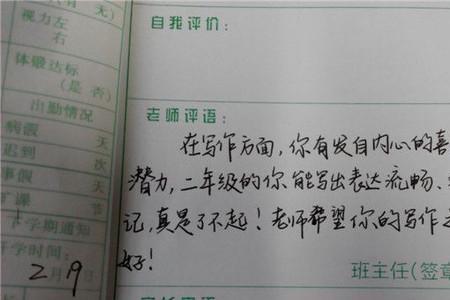 有 无)
视力左
右
体锻达标
(是 否)
出勤情况
病假 天
迟到 次
事假 天
旷课 节
下学期通知
开学时间:
2月19日
自我评价:
老师评语:
在写作方面,你有发自内心的喜
潜力,二年级的你能写出表达流畅、
记,真是了不起!老师希望你的写作
好!
班主任(签章